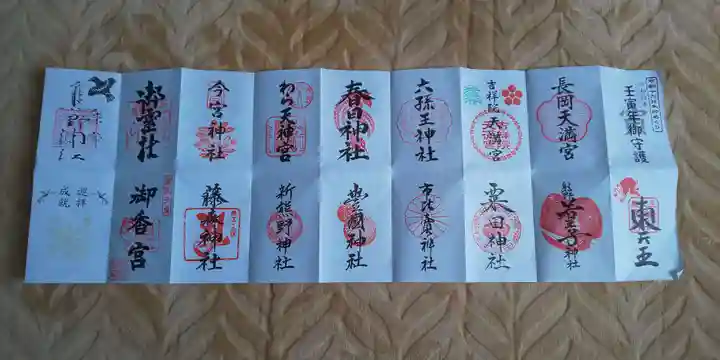 壬寅年御守護
長岡天満宮
吉祥院天満宮
六孫王神社
春日神社
わら天神宮
今宮神社
御霊社
東天王
若王子神社
粟田神社
市比賣神社
豊國神社
新熊野神社
藤森神社
御香宮
巡拝
成就